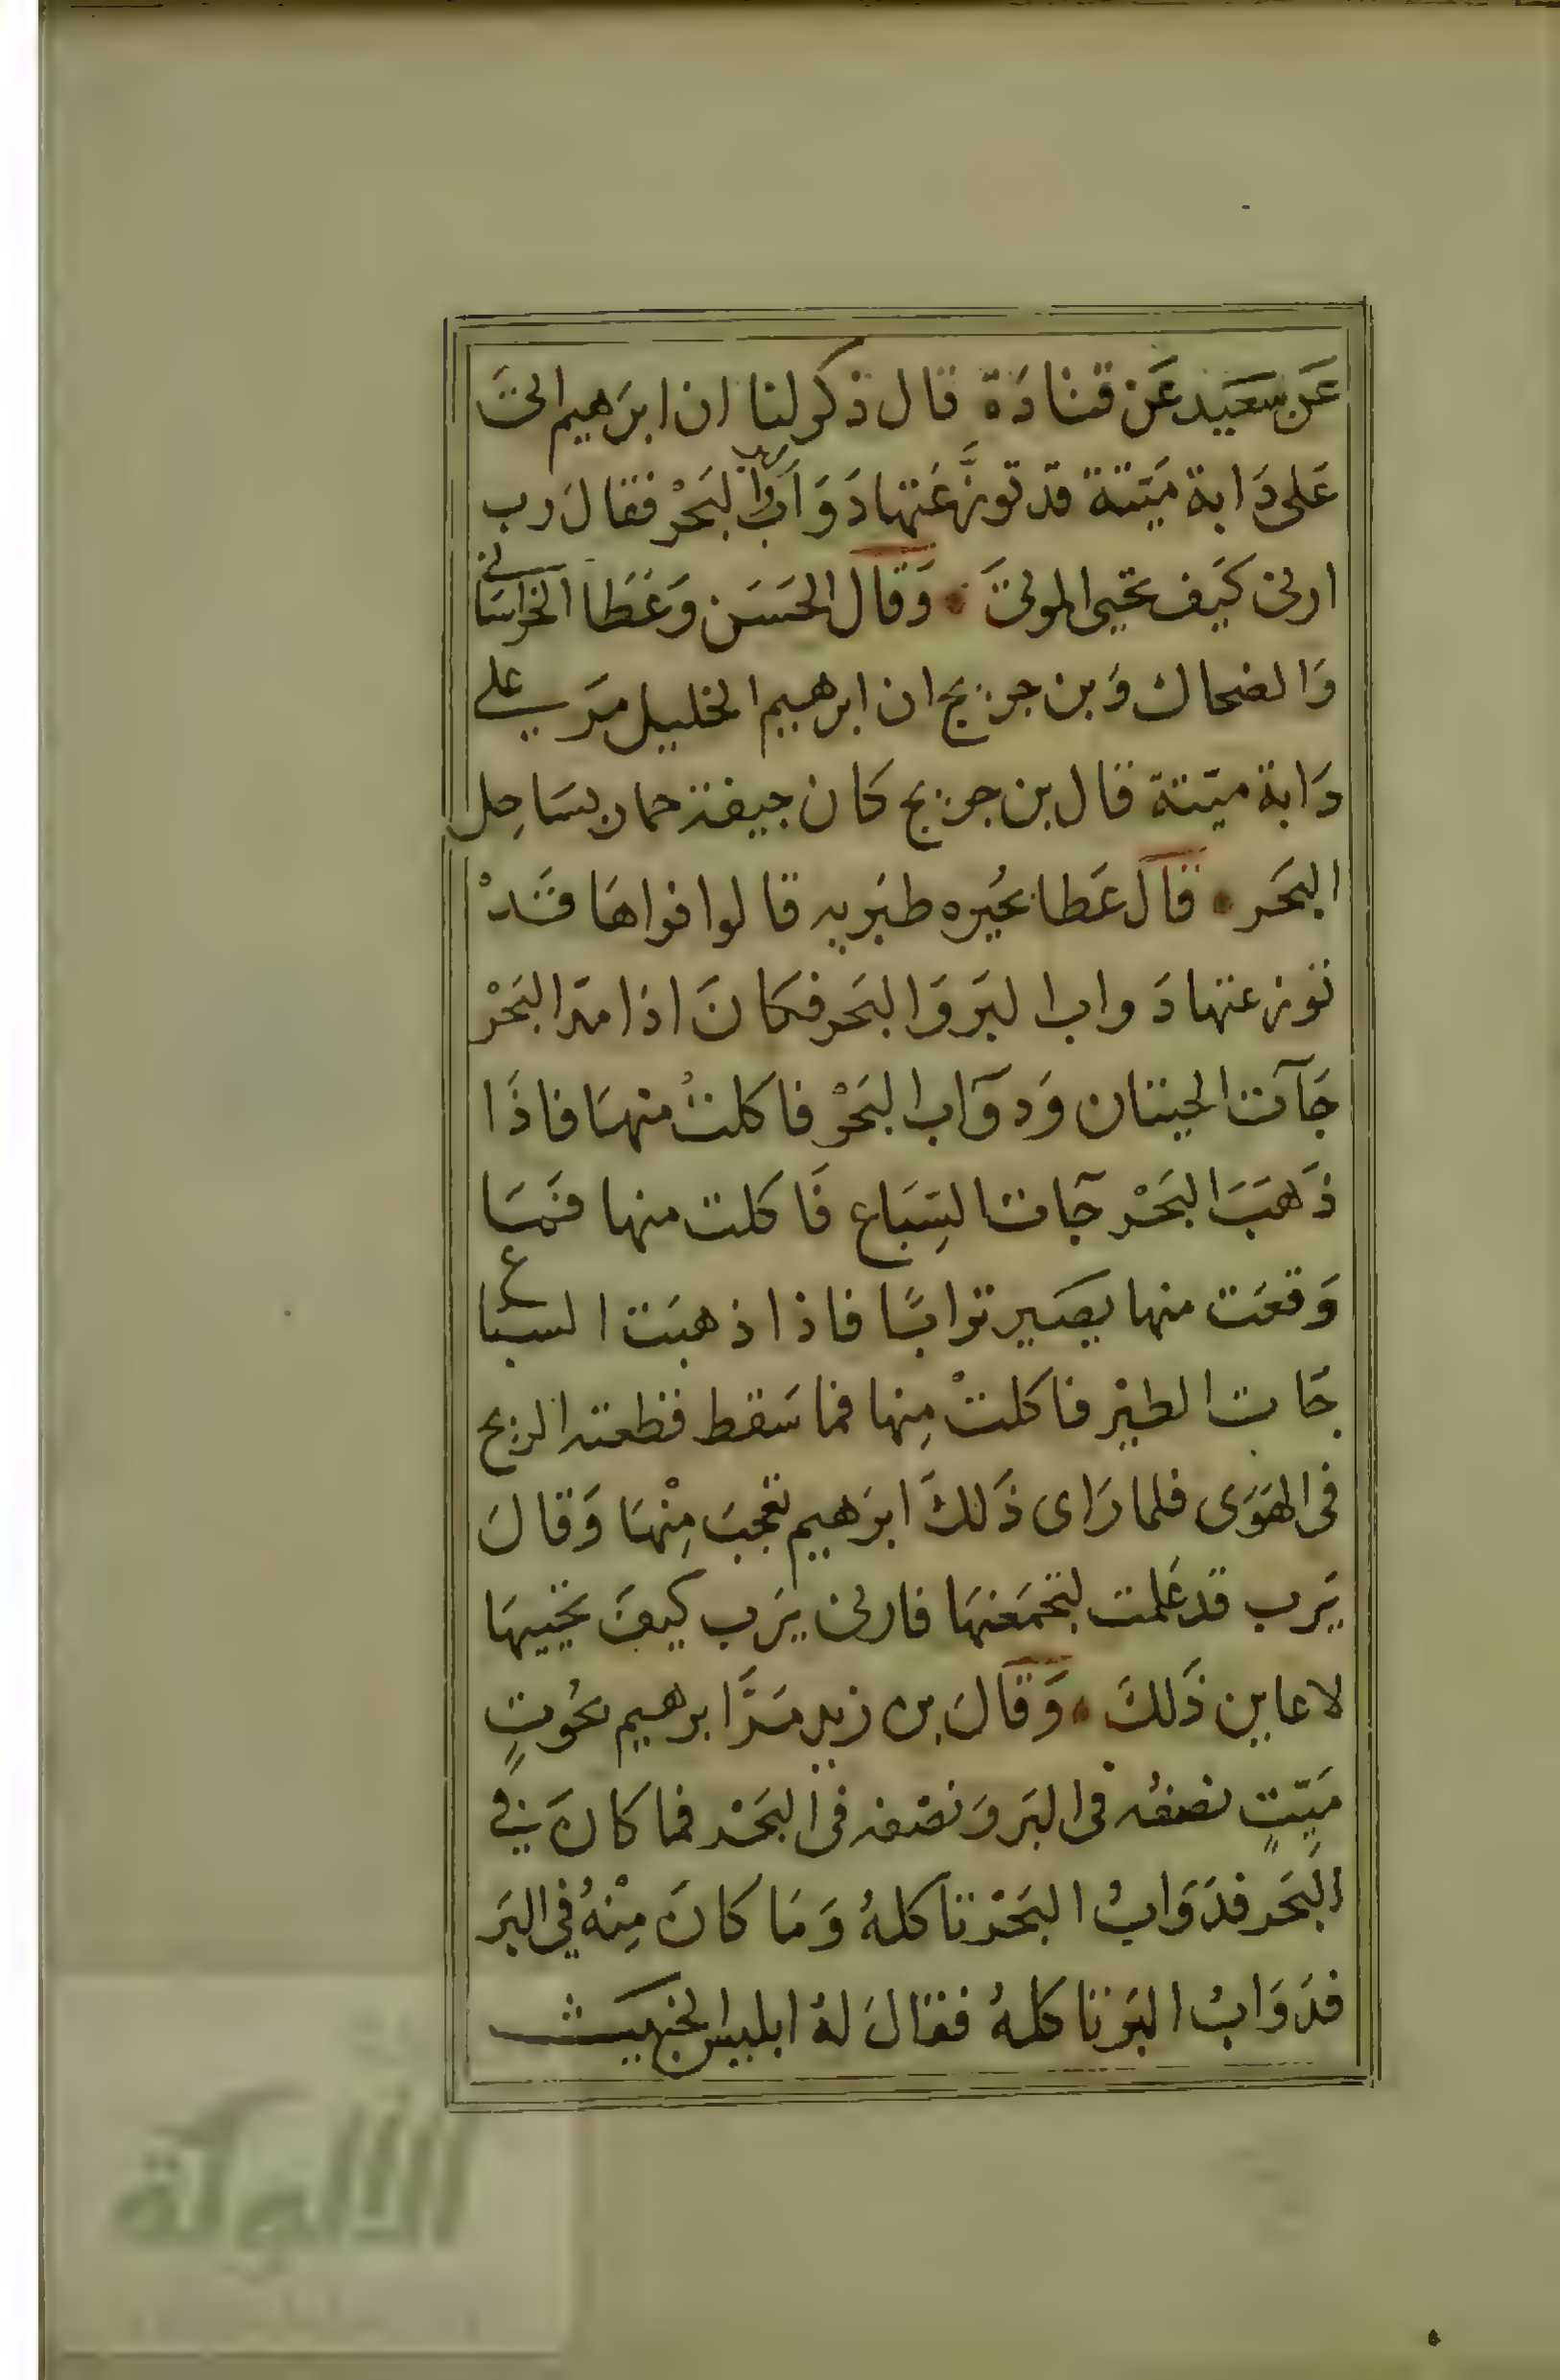 عَن سَعيد عَن قتادَة قال ذكر لنا ان ابرَهيم اتىَ
عَلى دَابة مَيّتة قد توزَّعَتها دَوَآبّ البَحْر فقالَ رب
ارنى كيَف تحيى الموتىَ • وَقال الحسَن وَعَطا الخراسَانى
وَالضحاك وَبن جريج ان ابرهيم الخليل مَرَ على
دَابة ميّتة قال بن جريج كان جيفة حمار بسَاحِل
البحَر • قالَ عَطا بحُيره طبَريه قالوا فراهَا قَدْ
توزعتها دَواب البَر وَالبَحر فكانَ اذا مدّ البَحْر
جَآت الحيتان وَدوَآب البَحْر فاكلتْ منهَا فاذَا
ذَهبَ البَحْر جآت السِبَاع فَاكلت منها فمَا
وَقعَت منها يصَير ترابًا فاذا ذهبَت السباع
جَات الطيْر فاكلتْ مِنها فما سَقط قطعته الريح
فى الهَوَى فلما رَاى ذَلكَ ابرَهيم تعجبَ مِنْهَا وَقالَ
يَرب قد عَلمت لتجمَعنهَا فارنى يَرب كيفَ تحييهَا
لاعاين ذَلكَ • وَقالَ بن زيد مَرَّ ابرهيم بحُوتٍ
مَيّتٍ نصفهُ فى البَر وَنصْفه فى البَحْر فما كانَ فى
البَحَر فدَوَابُ البَحْر تاكلهُ وَمَا كانَ مِنْهُ في البَر
فدَوَابُ البَر تاكلهُ فقالَ لهُ ابليس الخبيَث
الألوكة